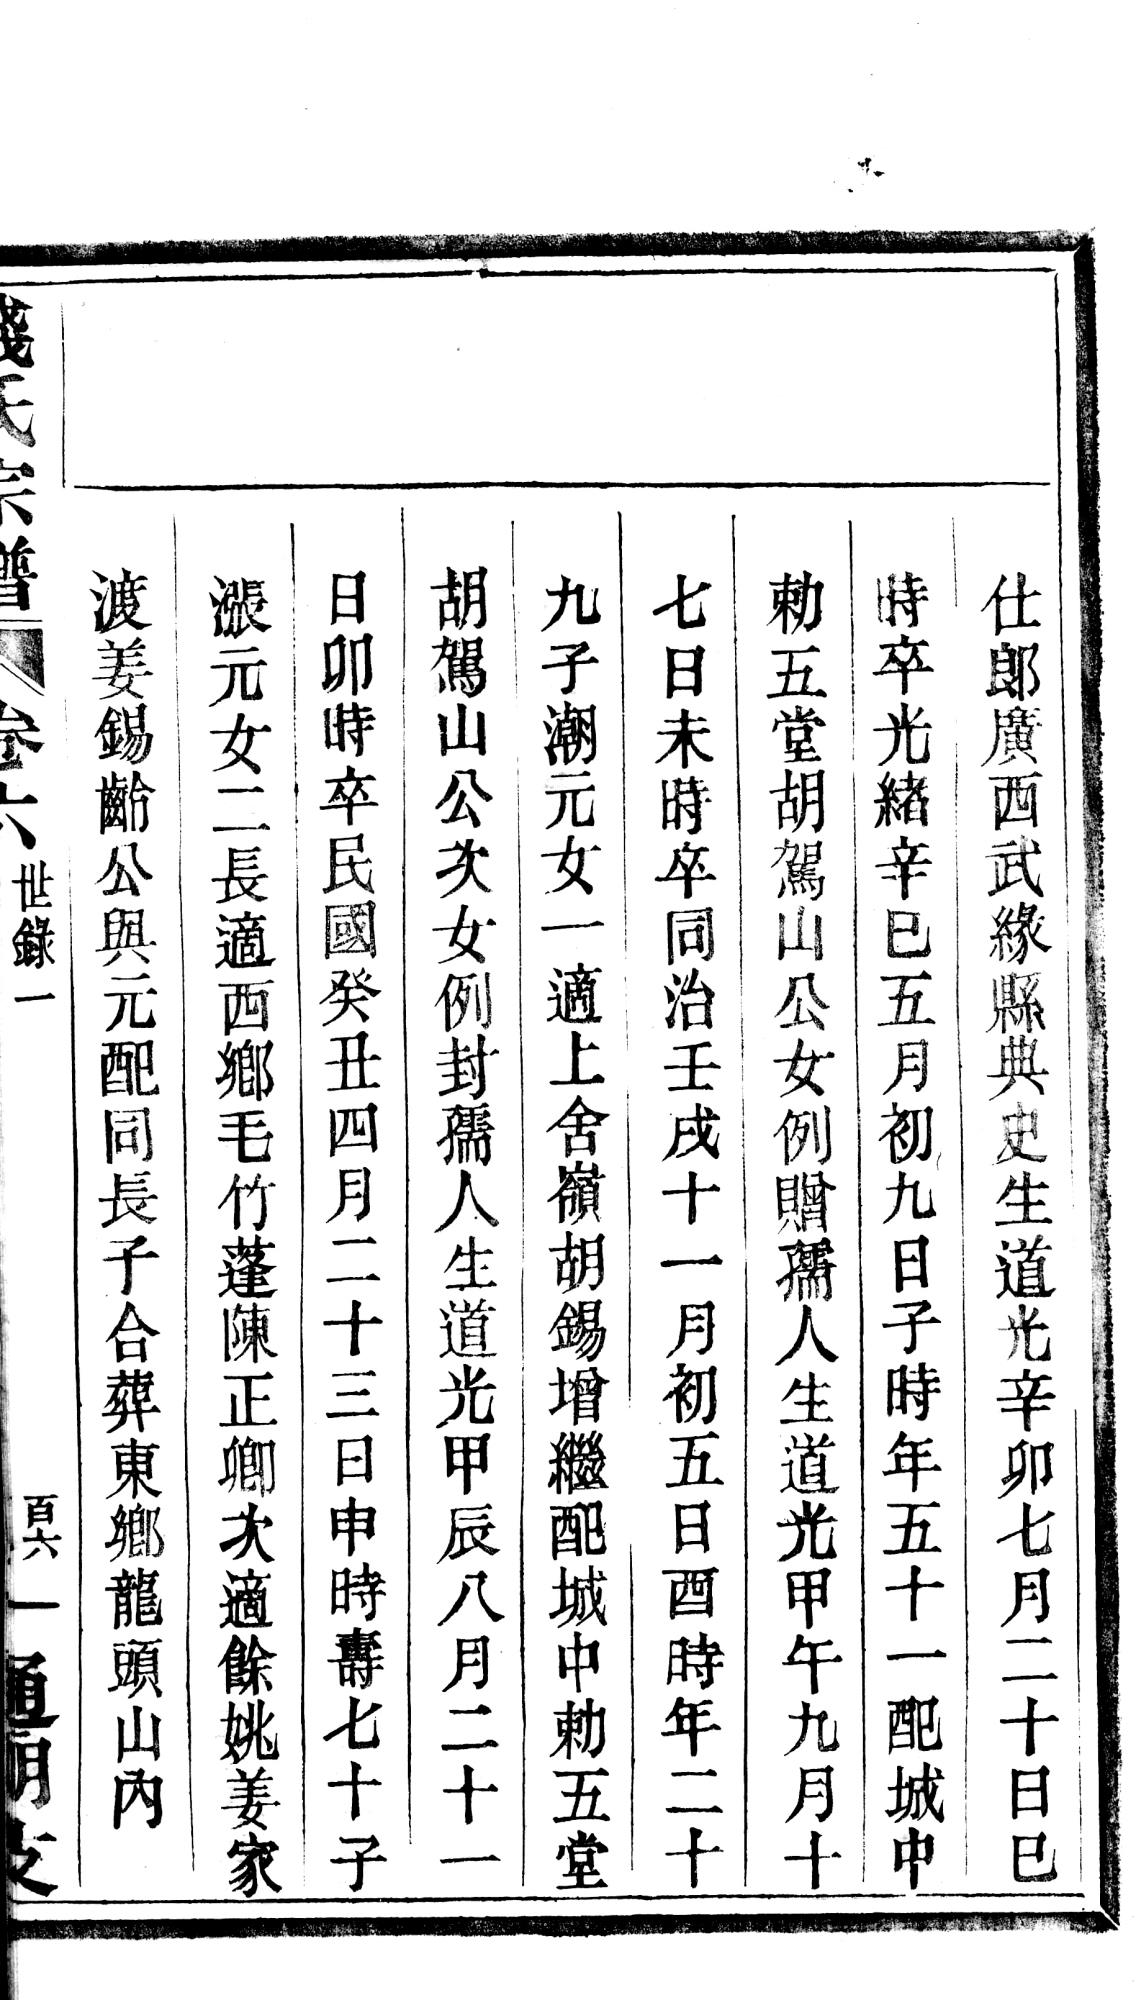 仕郎廣西武緣縣典史生道光辛卯七月二十日巳
時卒光緒辛巳五月初九日子時年五十一配城中
勅五堂胡駕山公女例贈孺人生道光甲午九月十
七日未時卒同治壬戌十一月初五日酉時年二十
九子潮元女一適上舍嶺胡錫增繼配城中勅五堂
胡駕山公次女例封孺人生道光甲辰八月二十一
日卯時卒民國癸丑四月二十三日申時壽七十子
漲元女二長適西鄉毛竹蓬陳正卿次適餘姚姜家
渡姜錫齡公與元配同長子合葬東鄉龍頭山內
錢氏宗譜 卷六 世錄一 百六 一 通明支